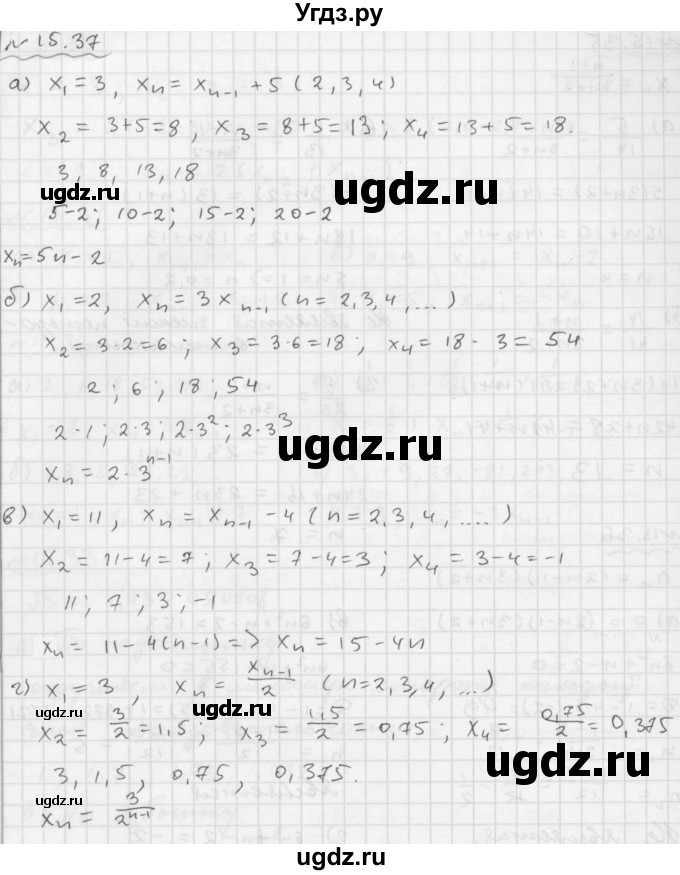 Угдз.ру
№ 15.37
а) x₁ = 3, xₙ = xₙ₋₁ + 5 (2, 3, 4)
x₂ = 3+5=8, x₃ = 8+5=13; x₄ = 13+5=18.
3, 8, 13, 18
ugdz.ru ugdz.ru
5-2; 10-2; 15-2; 20-2
xₙ=5n-2
б) x₁=2, xₙ=3xₙ₋₁ (n=2,3,4,...)
x₂=3·2=6; x₃=3·6=18; x₄=18·3=54
2; 6; 18; 54
2·1; 2·3; 2·3²; 2·3³
ugdz.ru ugdz.ru
xₙ=2·3ⁿ⁻¹
в) x₁=11, xₙ=xₙ₋₁-4 (n=2,3,4,....)
x₂=11-4=7; x₃=7-4=3; x₄=3-4=-1
11; 7; 3; -1
ugdz.ru
xₙ=11-4(n-1)=> xₙ=15-4n
г) x₁=3, xₙ=xₙ₋₁/2 (n=2,3,4,...)
ugdz.ru ugdz.ru
x₂=3/2=1,5; x₃=1,5/2=0,75; x₄=0,75/2=0,375
3, 1,5, 0,75, 0,375.
ugdz.ru ugdz.ru
xₙ=3/2ⁿ⁻¹
ugdz.ru